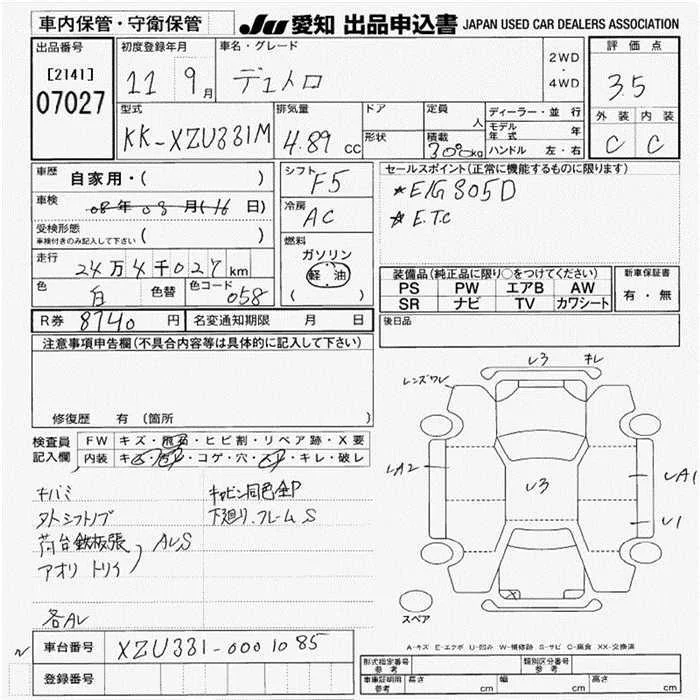 車内保管・守衛保管 JU 愛知 出品申込書 JAPAN USED CAR DEALERS ASSOCIATION
出品番号 初度登録年月 車名・グレード 2WD ・ 4WD 評価点
[2141] 07027 11 9月 デュトロ 35
外装 内装
C C
型式 排気量 ドア 定員 人 ディーラー・並行
KK-XZU331M 4.89cc 形状 積載 300kg モデル年式 年
ハンドル 左・右
車歴 自家用・( ) シフト F5 セールスポイント(正常に機能するものに限ります)
車検 08年08月(16日) 冷房 AC *E/G 805D
*E.T.C
受検形態 車検付きのみ記入して下さい ( ) 燃料
走行 24万4千027km ガソリン 軽油 ( )
装備品(純正品に限り○をつけてください) 新車保証書
色 白 色替 色コード 058 PS PW エアB AW 有・無
SR ナビ TV カワシート
R券 8740円 名変通知期限 月 日 後日品
注意事項申告欄(不具合内容等は具体的に記入して下さい)
修復歴 有 (箇所 )
検査員記入欄 FW キズ・飛石・ヒビ割・リペア跡・X要
内装 キズ・汚レ・コゲ・穴・スレ・キレ・破レ
キバミ キャビン同色全P
タトシフトノブ 下廻り、フレームS
荷台鉄板張 AL、S
アオリ トリイ
各AL
レンズワレ
U3 キレ
UA2
U3
UA1
U1
X
スペア
A-キズ E-エクボ U-凹み W-補修跡 S-サビ C-腐食 XX-交換済
車台番号 XZU331-0001085
登録番号
形式指定番号 参考 類別区分番号 参考
車庫証明用 参考 長さ cm 幅 cm 高さ cm